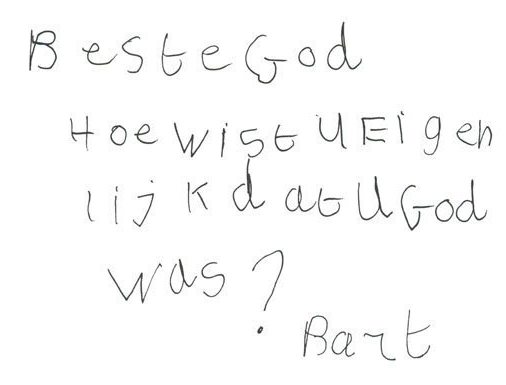 Beste God
Hoe wist U Eigen
lijk dat U God
was?
Bart